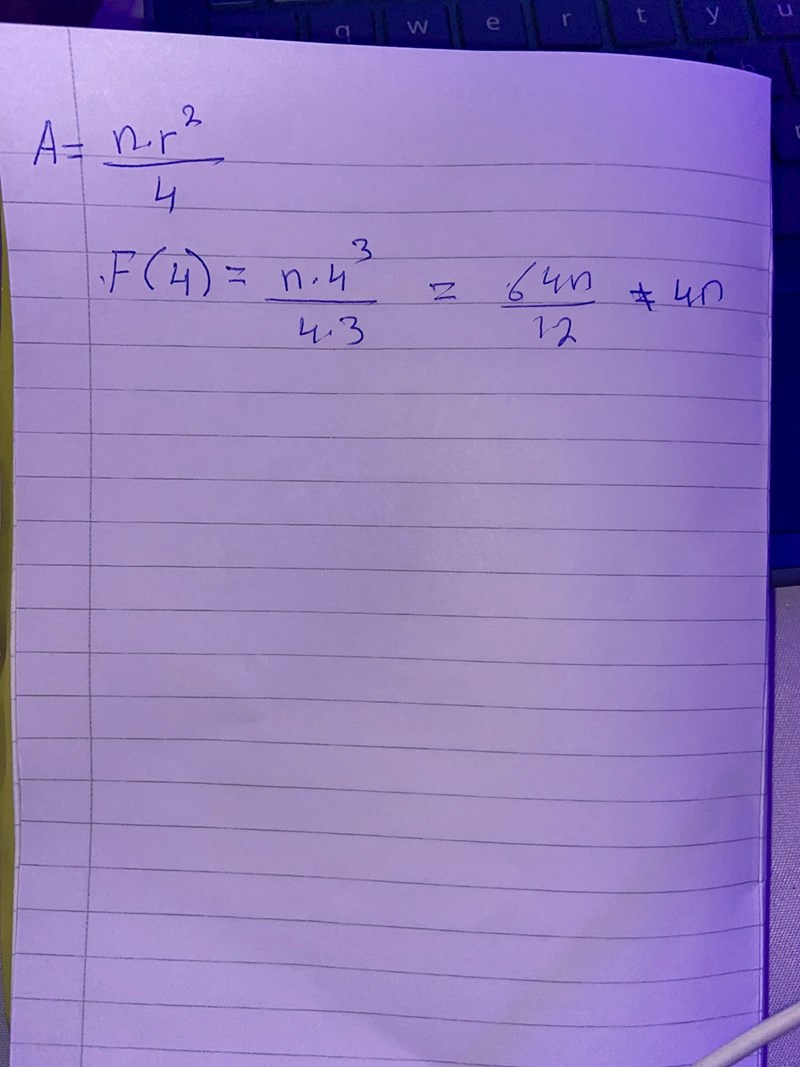 q w e r t y u
A = n·r²/4
F(4) = n·4³/4·3 = 64n/12 ≠ 4n